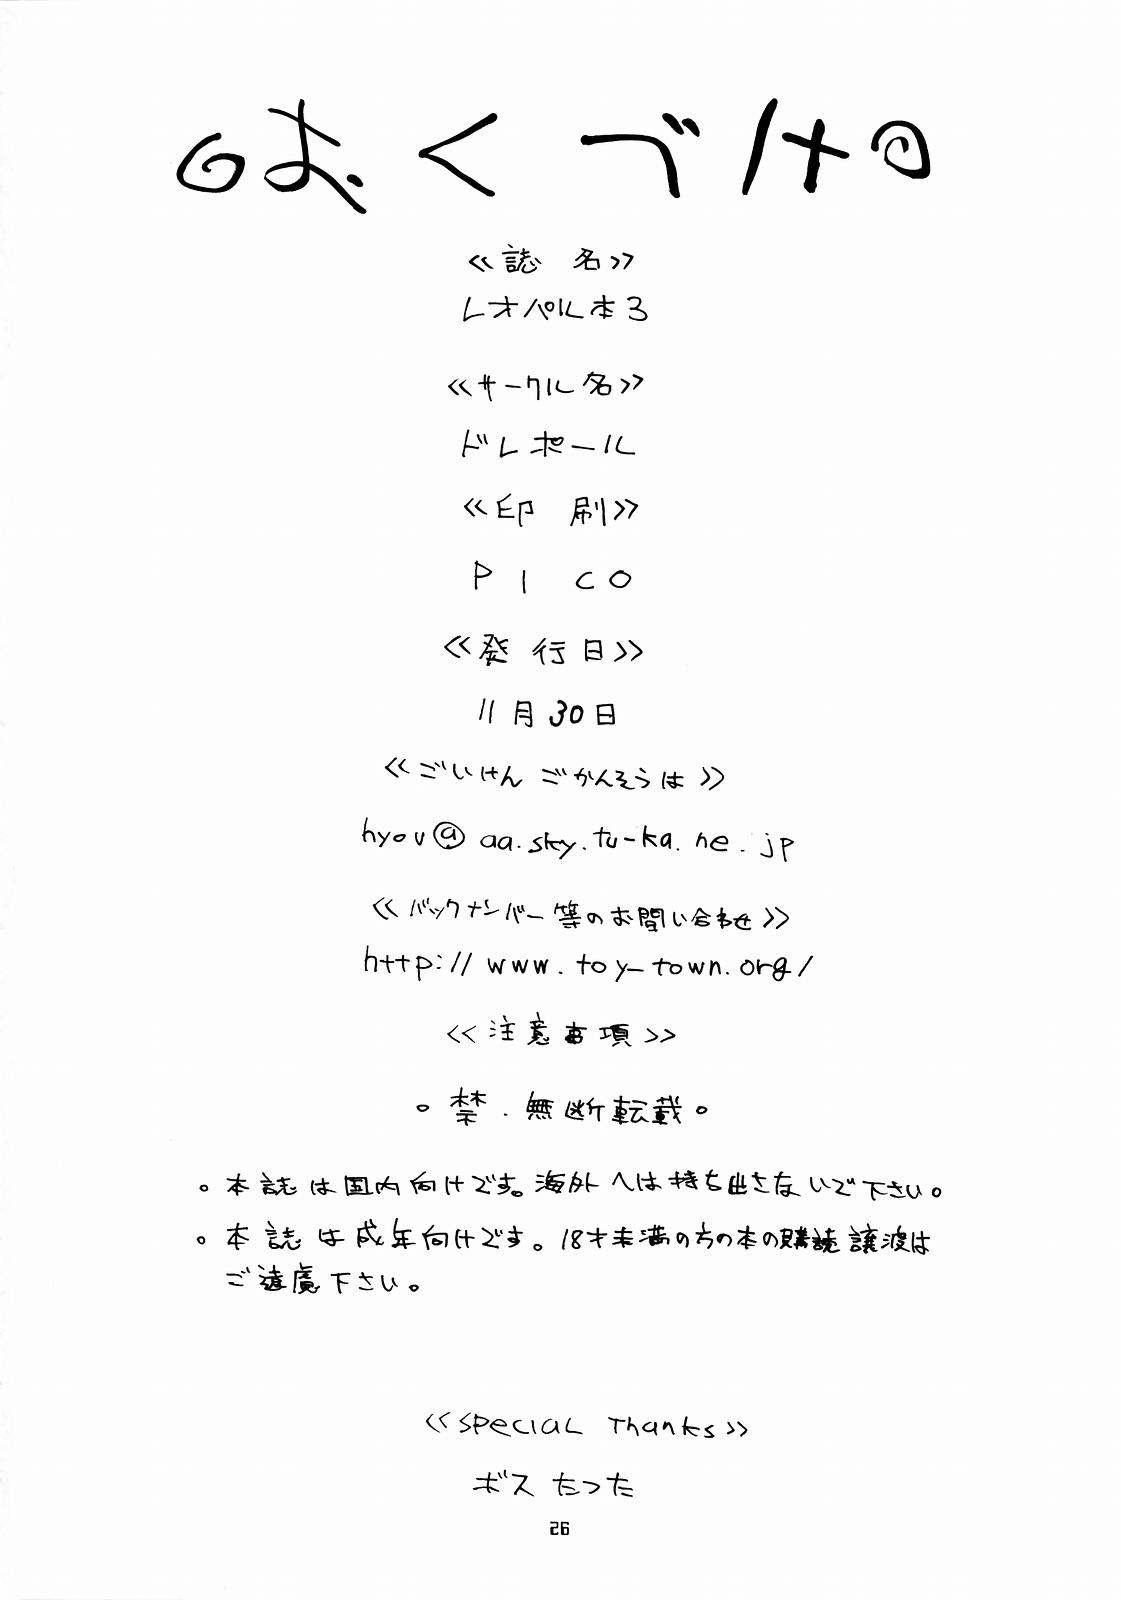 おくづけ
≪誌 名≫
レオパル本3
≪サークル名≫
ドレポール
≪印 刷≫
PICO
≪発行日≫
11月30日
≪ごいけん ごかんそうは≫
hyou@aa.sky.tu-ka.ne.jp
≪バックナンバー等のお問い合わせ≫
http://www.toy-town.org/
≪注意事項≫
。禁.無断転載。
。本誌は国内向けです。海外へは持ち出さないで下さい。
。本誌は成年向けです。18才未満の方の本の購読譲渡は
ご遠慮下さい。
≪SPECIAL Thanks≫
ボス たつた
26